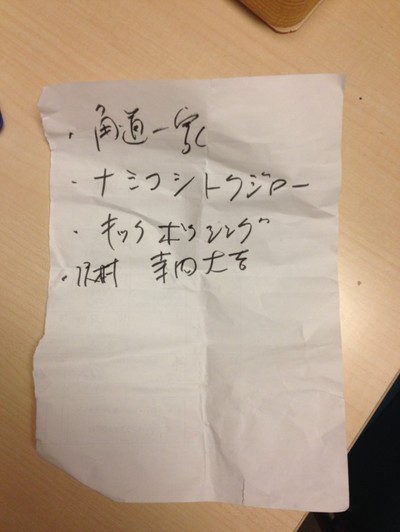 ・角道一家
・ナミコシトクジロー
・キックボクシング
・沢村 大吉